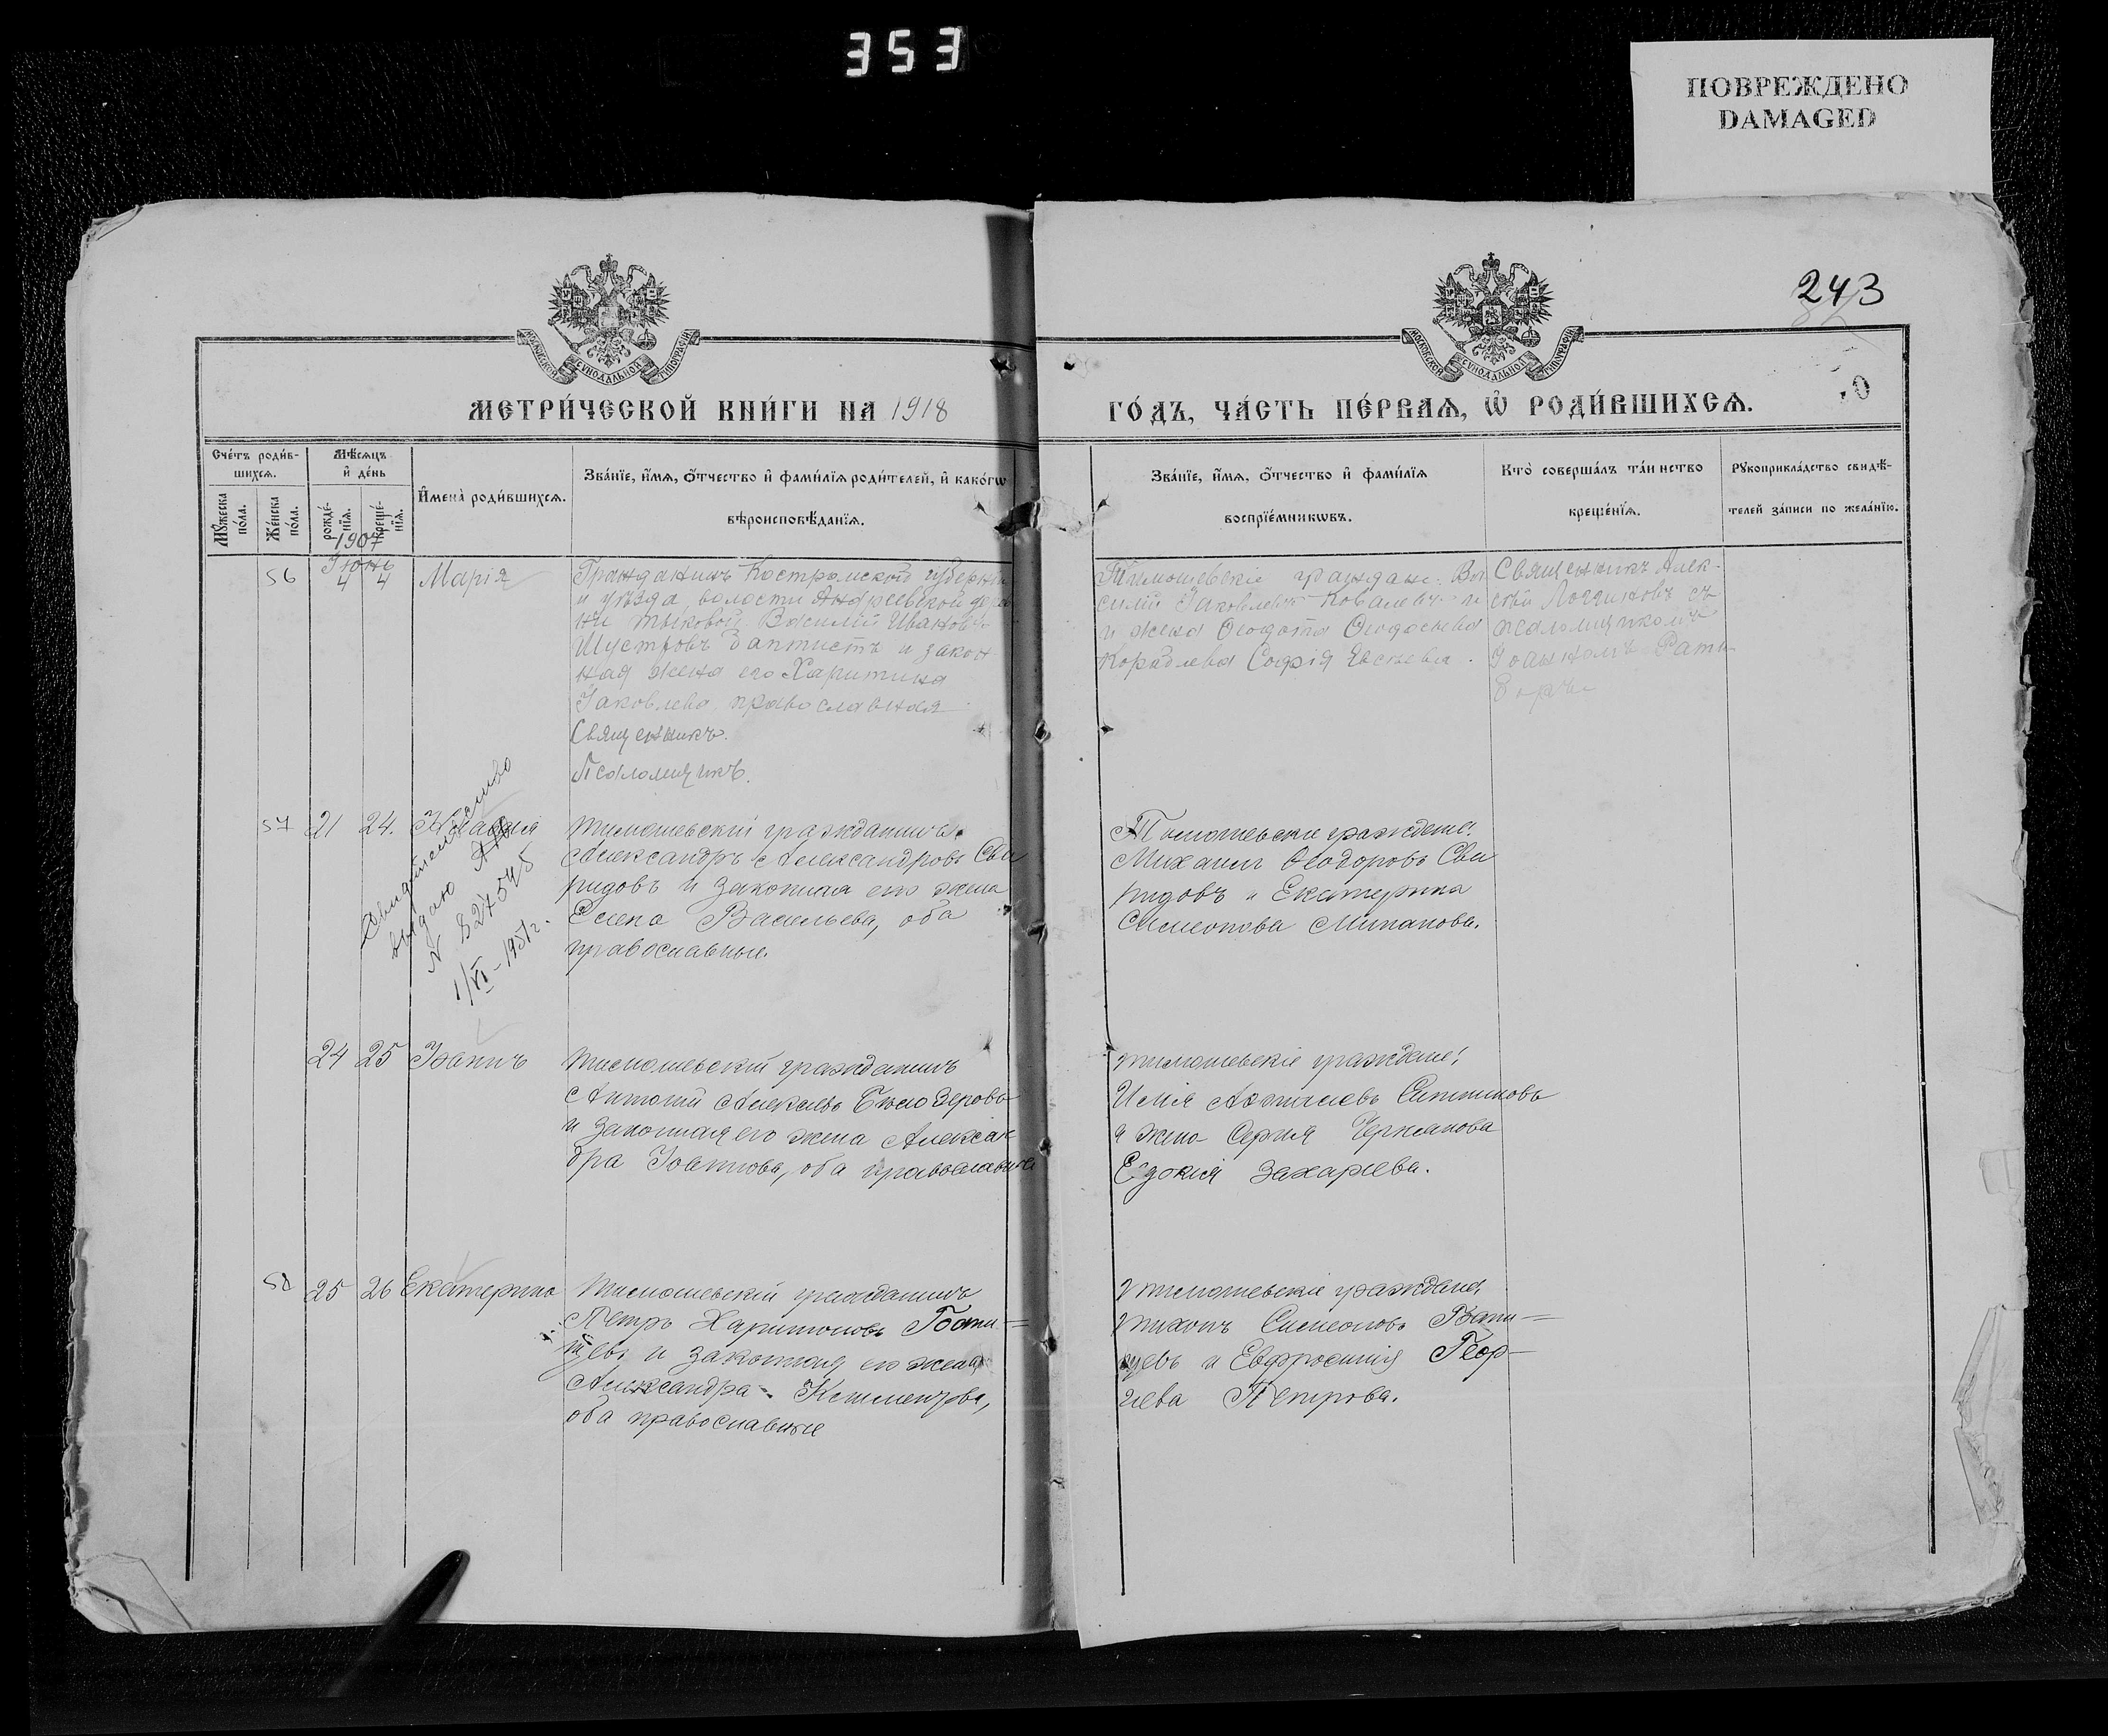 353
ПОВРЕЖДЕНО
DAMAGED
243
МОСКОВСКОЙ СѴНОДАЛЬНОЙ ТИПОГРАФІИ
МОСКОВСКОЙ СѴНОДАЛЬНОЙ ТИПОГРАФІИ
МЕТРИ́ЧЕСКОЙ КНИ́ГИ НА 1918
ГО́ДЪ, ЧА́СТЬ ПЕ́РВАѦ, Ѽ РОДИ́ВШИХСѦ.
Сче́тъ роди́в-
шихсѧ.
Мꙋ́жеска
по́ла.
Же́нска
по́ла.
Мѣ́сѧцъ
и҆ де́нь
рожде́-
нїѧ.
креще́-
нїѧ.
И҆мена̀ роди́вшихсѧ.
Зва́нїе, и҆́мѧ, ѻ҆́тчество и҆ фами́лїѧ роди́телей, и҆ како́гѡ
вѣроисповѣ́данїѧ.
Зва́нїе, и҆́мѧ, ѻ҆́тчество и҆ фами́лїѧ
воспрїе́мникѡвъ.
Кто̀ соверша́лъ та́инство
креще́нїѧ.
Рꙋкоприкла́дство свидѣ́-
телей за́писи по жела́нїю.
1907
Іюнь
56 4 4 Марія
Гражданинъ Костромской губерніи
и уѣзда, волости Андреевской дерев
ни Тыковой Василій Иванов
Шустровъ Баптистъ и закон
ная жена его Харитина
Іаковлева, православная
Священникъ.
Псаломщикъ.
Тимошевскіе граждане: Ва
силій Іаковлевъ Ковалевъ и
и жена Ѳеодота Ѳеодосіева
Королева Софія Евсиева.
Священникъ Алек-
сѣй Логгиновъ съ
псаломщикомъ
Іоанномъ Рати
57 21 24. Клавдія
Свидетельство
выдаю
N 827545
1/VI-1951г.
Тимошевскій гражданинъ
Александръ Александровъ Сви
ридовъ и законная его жена
Елена Васильева, оба
православные.
Тимошевскіе граждане:
Михаилъ Ѳеодоровъ Сви
ридовъ и Екатерина
Симеонова Митанова.
24 25 Іоаннъ
Тимошевскій гражданинъ
Антоній Алексѣевъ Бѣлозеровъ
и законная его жена Алексан
дра Іоаннова, оба православные
Тимошевскіе граждане:
Илія Ситниковъ
и жена Сергія Черкасова
Евдокія Захаріева.
58 25 26 Екатерина
Тимошевскій гражданинъ
Петръ Харитоновъ
и законная его жена
Александра Климентова,
оба православные
Тимошевскіе граждане,
Тихонъ Симеоновъ Вати-
щевъ и Евфросинія Геор-
гіева Петрова.